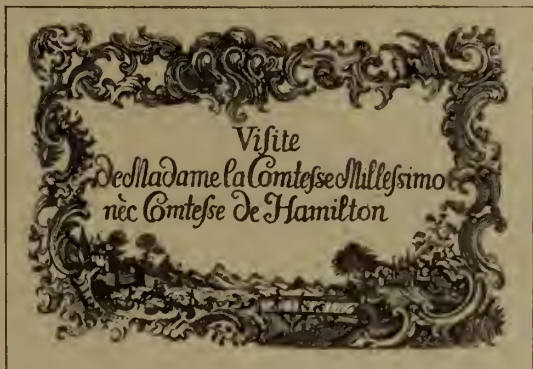 Viſite
de Madame la Comteſse Milleſsimo
nèc Comteſse de Hamilton